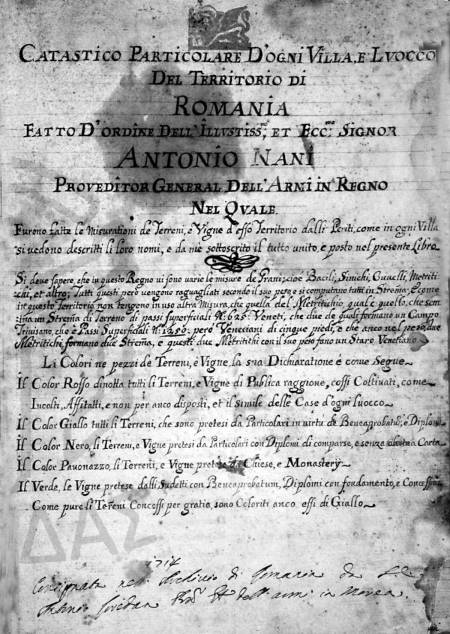 CATASTICO PARTICOLARE D'OGNI VILLA, E LVOCO
DEL TERRITORIO DI
ROMANIA
FATTO D'ORDINE DELL'ILLVSTISS.mo ET ECC.mo SIGNOR
ANTONIO NANI
PROVEDITOR GENERAL DELL'ARMI IN REGNO
NEL QVALE.
Furono fatte le Misurationi de Terreni, e Vigne d'esso Territorio dalli Periti, come in ogni Villa
si vedono descritti li loro nomi, e da me sottoscrito il tutto unito, e posto nel presente Libro.
Si deve sapere, che in questo Regno vi sono varie le misure de Grani, cioè Bacili, Sinichi, Cuvelli, Metriti-
chi, et altro; Tutti questi però vengono raguagliati secondo il suo peso e si computano tutti in Strema; E come
in questo Territorio non tengono in uso altra Misura, che quella del Metritichio, qual è quello, che se-
mina un Strema di Terreno di passi superficiali N.º 625: Veneti, che due de quali formano un Campo
Trivisano, che è Passi Superficiali N.º 1250: però Veneciani di cinque piedi, e che anco nel peso due
Metritichi, formano due Strema, e questi due Metritichi con il suo peso fano un Staro Venetiano
Li Colori ne pezzi de Terreni, e Vigne, la sua Dichiaratione è come Segue
Il Color Rosso dinotta tutti li Terreni, e Vigne di Publica raggione, cossì Coltivati, come
Incolti, Affitatti, e non per anco disposti, et il simile delle Case d'ogni luocco
Il Color Giallo tutti li Terreni, che sono pretesi da Particolari in virtù de Beneaprobatur, e Diplomi
Il Color Nero, li Terreni, e Vigne pretesi da Particolari con Diplomi di comparse, e senza alcuna Carta
Il Color Pavonazzo, li Terreni, e Vigne pretese da Chiese, e Monasterij
Il Verde, le Vigne pretese dalli Sudetti con Beneaprobatum, Diplomi con fondamento, e Concessioni
Come pure li Tereni Concessi per gratia, sono Coloriti anco essi di Giallo
1714
Consignata nell'Archivio di Romania da
dell'armi in Morea
ΔΑΣ